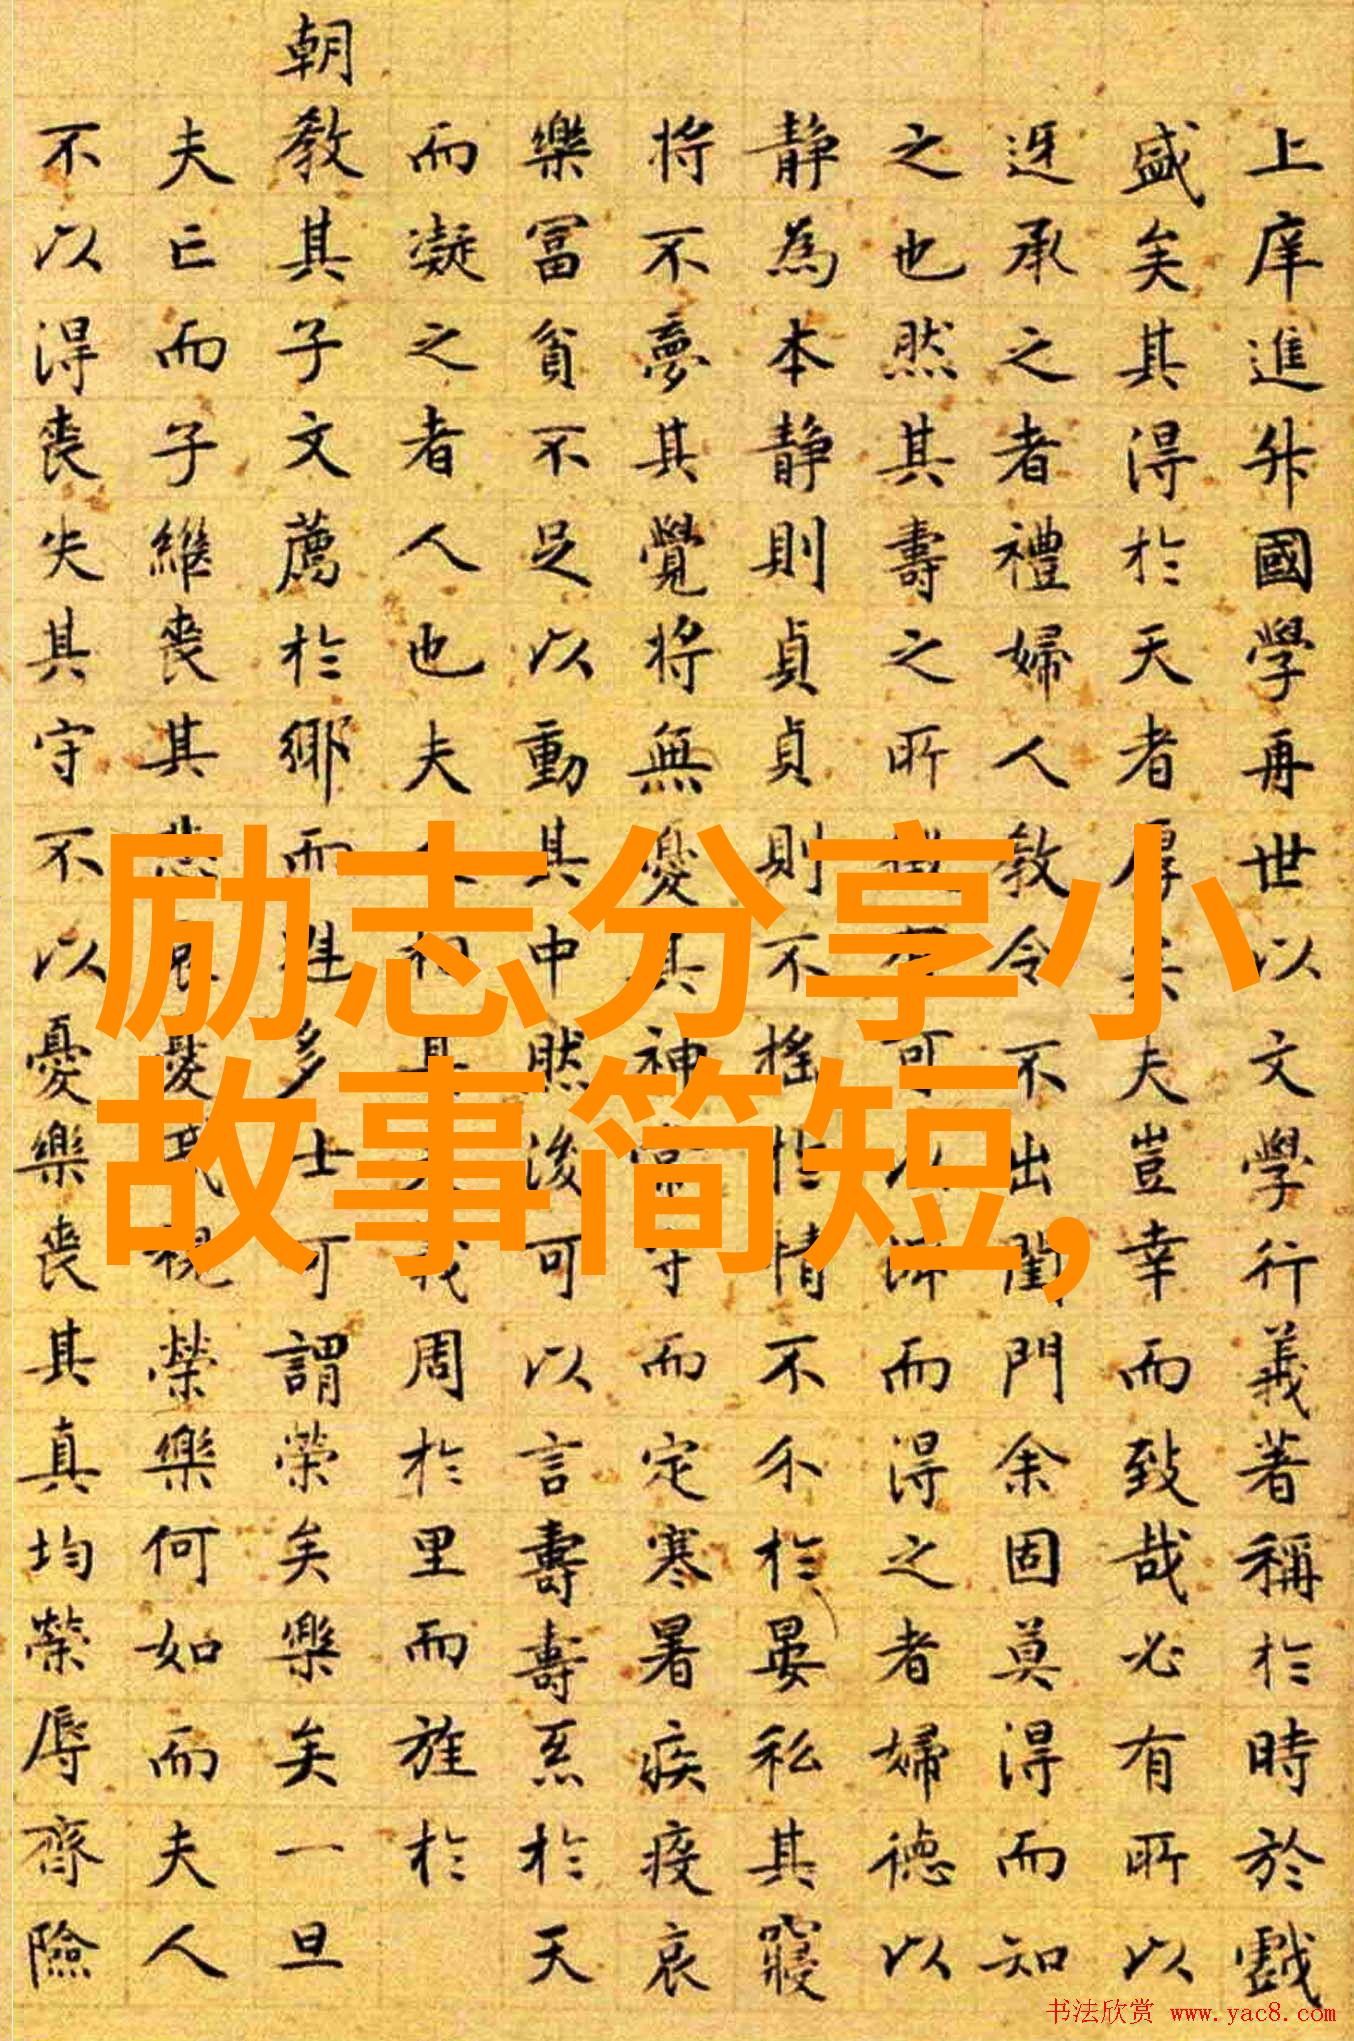 上庠進升國學再世以文學行義著稱於時於戲
盛矣其得於天者厚矣夫豈幸而致哉必有所以
迓承之者禮婦人教令不出閨門余固莫得而知
之也然其壽之所可以而得之者婦德以
靜為本靜則貞貞則不搖於情不介於晏私其寢
將不夢其覺將無憂其神常守而定寒暑疾疫哀
樂冨貧不足以動其中然後可以言壽壽於天
而凝之者人也夫相其義周於里而旌於
朝教其子文薦於鄉而多士可謂榮矣樂矣一旦
夫亡而子繼喪其悲哀憂戚視榮樂何如而夫人
不以得喪失其守不以憂樂喪其真均榮辱齊險
励志分享小
故事简短,
书法欣赏 www.yac8.com